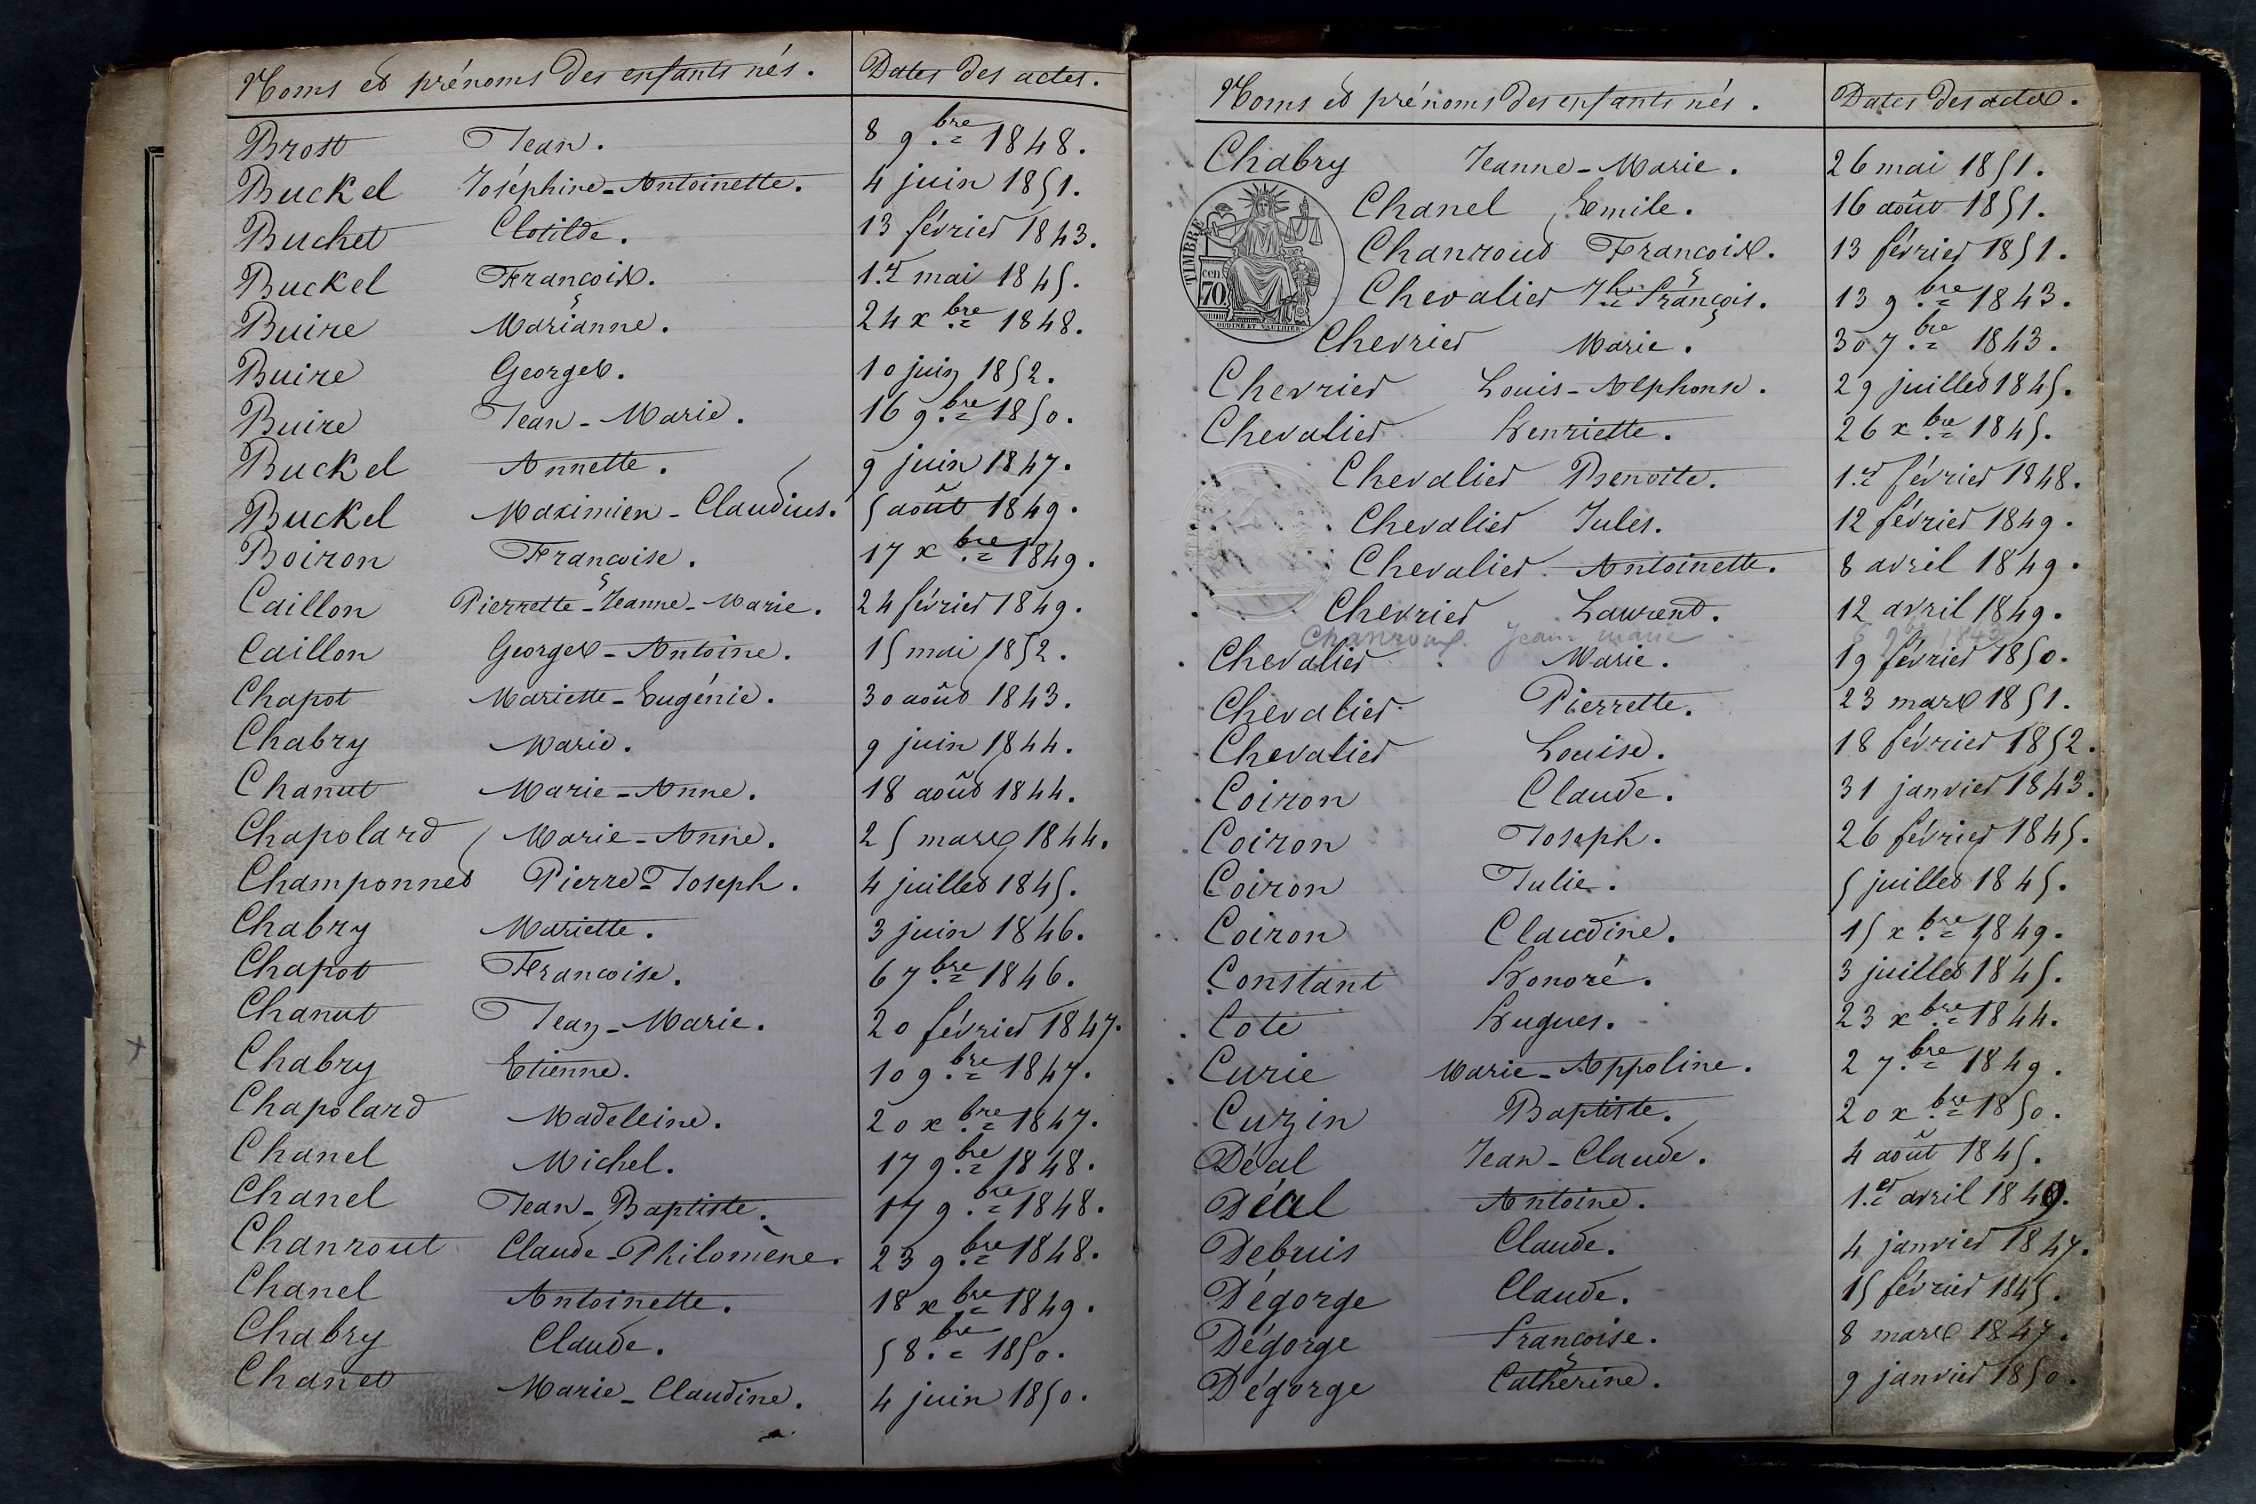 Noms et prénoms des enfants nés. Dates des actes.
Brost Jean. 8 9.bre 1848.
Buckel Joséphine-Antoinette. 4 juin 1851.
Buchet Clotilde. 13 février 1843.
Buckel François. 1.er mai 1845.
Buire Marianne. 24 x.bre 1848.
Buire Georges. 10 juin 1852.
Buire Jean-Marie. 16 9.bre 1850.
Buckel Annette. 9 juin 1847.
Buckel Maximien-Claudius. 5 août 1849.
Boiron Françoise. 17 x.bre 1849.
Caillon Pierrette-Jeanne-Marie. 24 février 1849.
Caillon Georges-Antoine. 15 mai 1852.
Chapot Mariette-Eugénie. 30 août 1843.
Chabry Marie. 9 juin 1844.
Chanut Marie-Anne. 18 août 1844.
Chapolard Marie-Anne. 25 mars 1844.
Champonnet Pierre-Joseph. 4 juillet 1845.
Chabry Mariette. 3 juin 1846.
Chapot Françoise. 6 7.bre 1846.
Chanut Jean-Marie. 20 février 1847.
Chabry Etienne. 10 9.bre 1847.
Chapolard Madeleine. 20 x.bre 1847.
Chanel Michel. 17 9.bre 1848.
Chanel Jean-Baptiste. 17 9.bre 1848.
Chanrout Claude-Philomène. 23 9.bre 1848.
Chanel Antoinette. 18 x.bre 1849.
Chabry Claude. 5 8.bre 1850.
Chanet Marie-Claudine. 4 juin 1850.
Noms et prénoms des enfants nés. Dates des actes.
Chabry Jeanne-Marie. 26 mai 1851.
Chanel Emile. 16 août 1851.
Chanroud François. 13 février 1851.
Chevalier Jh. François. 13 9.bre 1843.
Chevrier Marie. 30 7.bre 1843.
TIMBRE
cen
70
OUDINE ET VAUTHIER
Chevrier Louis-Alphonse. 29 juillet 1845.
Chevalier Henriette. 26 x.bre 1845.
Chevalier Benoite. 1.er février 1848.
Chevalier Jules. 12 février 1849.
Chevalier Antoinette. 8 avril 1849.
Chevrier Laurent. 12 avril 1849.
Chanroux Jean marie
Chevalier Marie. 19 février 1850.
Chevalier Pierrette. 23 mars 1851.
Chevalier Louise. 18 février 1852.
Coiron Claude. 31 janvier 1843.
Coiron Joseph. 26 février 1845.
Coiron Julie. 5 juillet 1845.
Coiron Claudine. 15 x.bre 1849.
Constant Honoré. 3 juillet 1845.
Cote Hugues. 23 x.bre 1844.
Curie Marie-Appoline. 2 7.bre 1849.
Cuzin Baptiste. 20 x.bre 1850.
Déal Jean-Claude. 4 août 1845.
Déal Antoine. 1.er avril 1849.
Debuis Claude. 4 janvier 1847.
Dégorge Claude. 15 février 1845.
Dégorge Françoise. 8 mars 1847.
Dégorge Catherine. 9 janvier 1850.